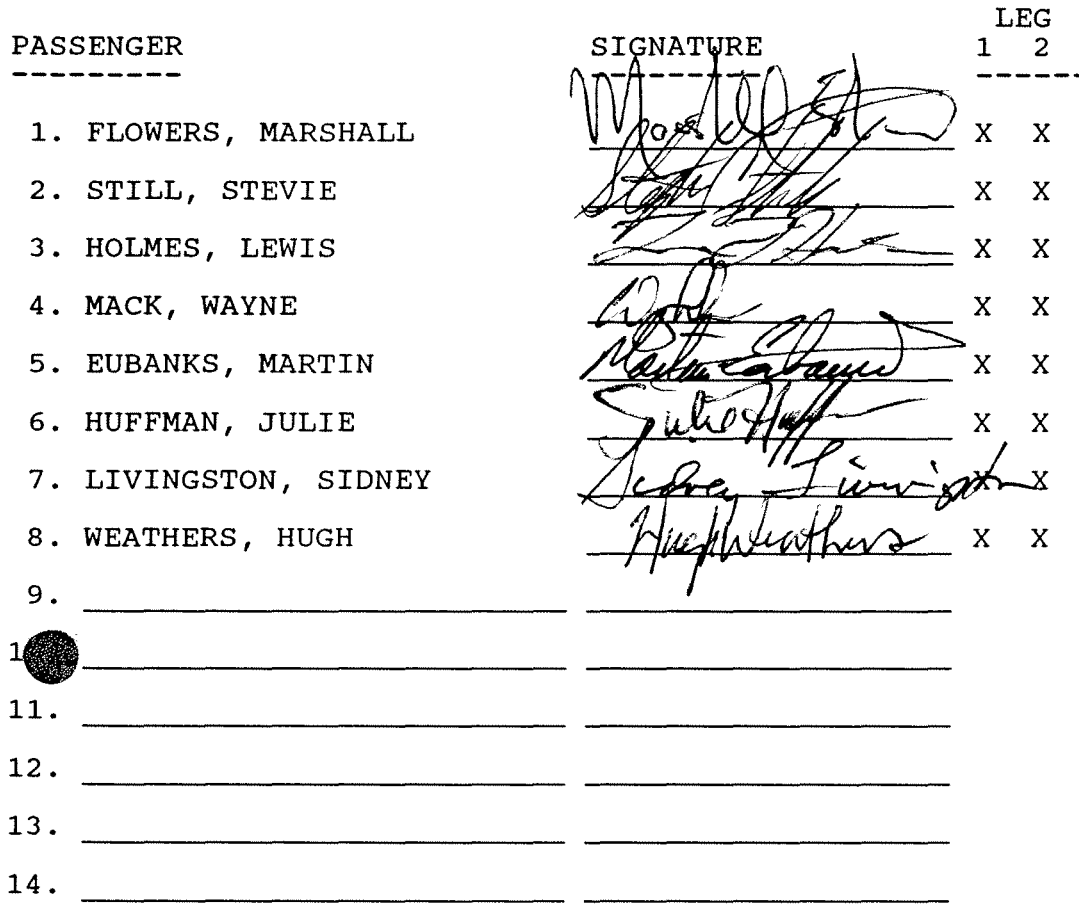 LEG
PASSENGER SIGNATURE 1 2
1. FLOWERS, MARSHALL X X
2. STILL, STEVIE X X
3. HOLMES, LEWIS X X
4. MACK, WAYNE X X
5. EUBANKS, MARTIN Martin Eubanks X X
6. HUFFMAN, JULIE Julie Huffman X X
7. LIVINGSTON, SIDNEY Sidney Livingston X X
8. WEATHERS, HUGH Hugh Weathers X X
9.
1
11.
12.
13.
14.